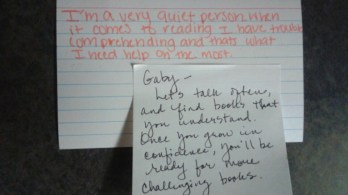 I'm a very quiet person. When
it comes to reading I have trouble
comprehending and thats what
I need help on the most.
Gaby –
Let's talk often,
and find books that
you understand.
Once you grow in
confidence, you'll be
ready for more
challenging books.